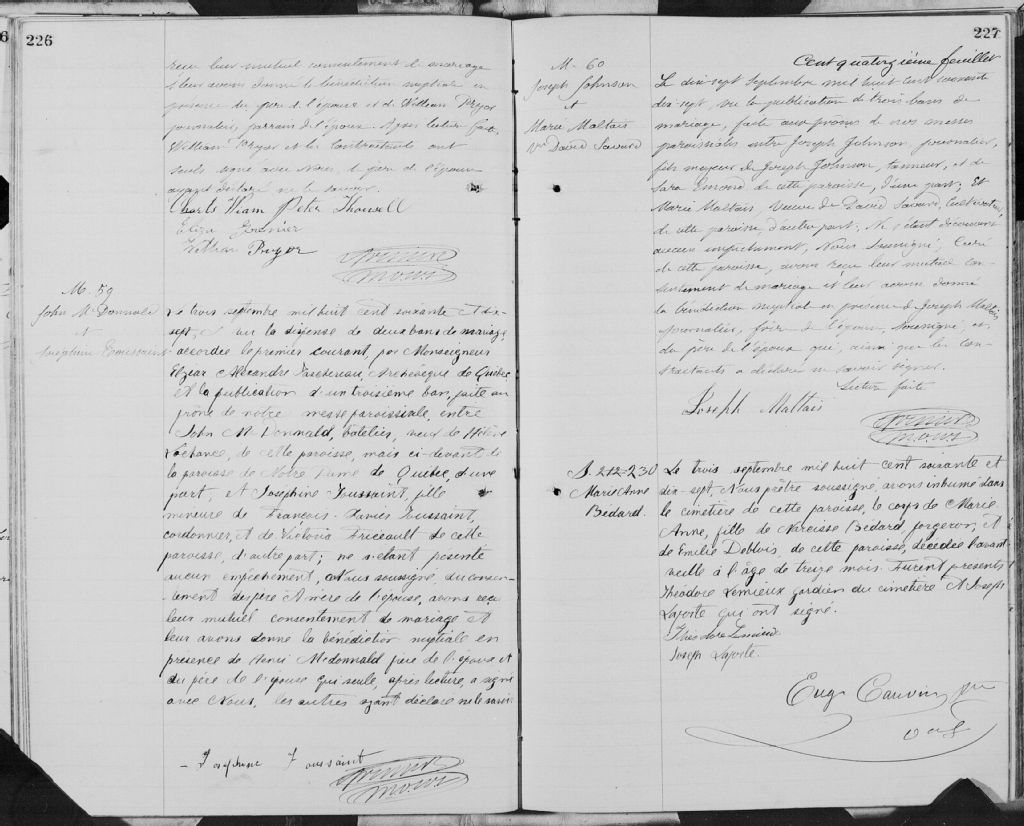 226
reçu leur mutuel consentement de mariage
& leur avons donné la bénédiction nuptiale en
présence du père de l'épouse et de William Pryor
journalier, parrain de l'époux. Après lecture faite
William Pryor et les contractants ont
seuls signé avec Nous, le père de l'épouse
ayant déclaré ne le savoir.
Charls Wiam Peter Thowell
Eliza
William Pryor
M. 59
John McDonnald
et
Joséphine Toussaint
Le trois septembre mil huit cent soixante et dix-
sept, vu la dispense de deux bans de mariage,
accordée le premier courant, par Monseigneur
Elzéar Alexandre Taschereau, Archevêque de Québec
et la publication d'un troisième ban, faite au
prône de notre messe paroissiale, entre
John McDonnald, batelier, veuf de Hélène
Lachance, de cette paroisse, mais ci-devant de
la paroisse de Notre Dame de Québec, d'une
part; et Joséphine Toussaint, fille
mineure de François-Xavier Toussaint,
cordonnier, et de Victoria Fricault de cette
paroisse, d'autre part; ne s'étant présenté
aucun empêchement, Nous soussigné, du consen-
tement des père & mère de l'épouse, avons reçu
leur mutuel consentement de mariage et
leur avons donné la bénédiction nuptiale en
présence de McDonnald père de l'époux et
du père de l'épouse qui seule, après lecture, a signé
avec Nous, les autres ayant déclaré ne le savoir
- Josephine Toussaint
227
Cent quatorzième feuillet
M. 60
Joseph Johnson
et
Marie Maltais
Vve David Savard
Le dix-sept septembre mil huit cent soixante
dix-sept, vu la publication de trois bans de
mariage, faite aux prônes de nos messes
paroissiales entre Joseph Johnson, journalier,
fils majeur de Joseph Johnson, tanneur, et de
Sara Emond de cette paroisse, d'une part; Et
Marie Maltais, veuve de David Savard, cultivateur,
de cette paroisse, d'autre part; Ne s'étant découvert
aucun empêchement, Nous soussigné, Curé
de cette paroisse, avons reçu leur mutuel con-
sentement de mariage et leur avons donné
la bénédiction nuptiale en présence de Joseph Maltais
journalier, frère de l'épouse, soussigné et
du père de l'époux qui, ainsi que les con-
tractants a déclaré ne savoir signer.
Lecture faite
Joseph Maltais
S. 212 230
Marie Anne
Bedard.
Le trois septembre mil huit cent soixante et
dix-sept, Nous prêtre soussigné, avons inhumé dans
le cimetière de cette paroisse, le corps de Marie
Anne, fille de Narcisse Bedard, forgeron, et
de Emilie Deblois, de cette paroisse, décédée l'avant-
veille à l'âge de treize mois. Furent présents
Théodore Lemieux gardien du cimetière & Joseph
Laporte qui ont signé.
Théodore Lemieux
Joseph Laporte.
Eug. Cauvin ptre